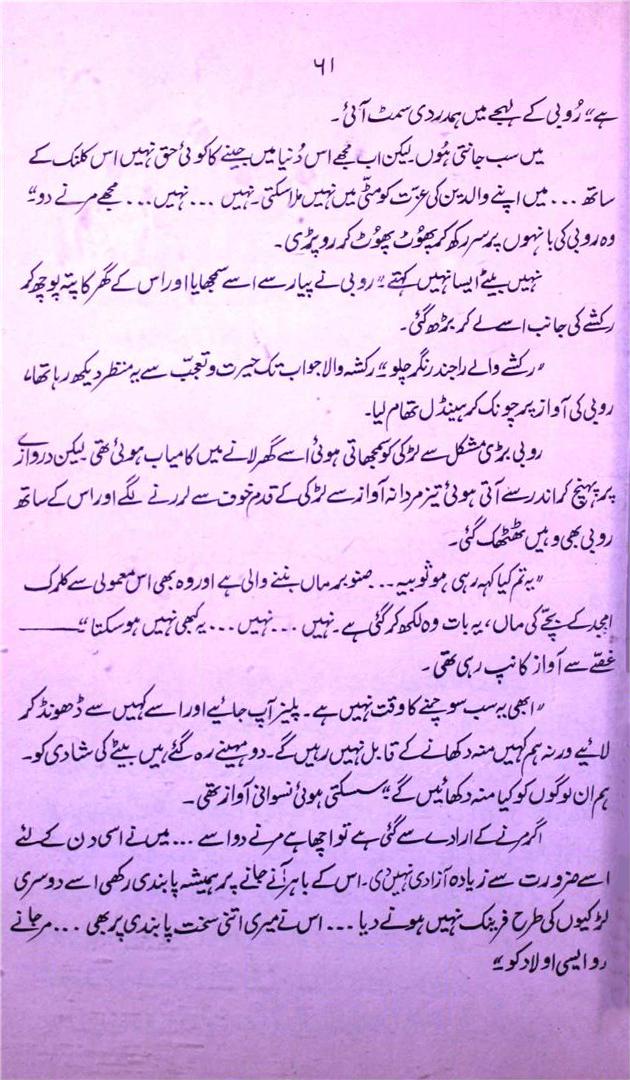 ۶۱
ہے“ رُوبی کے لہجے میں ہمدردی سمٹ آئی۔
میں سب جانتی ہُوں لیکن اب مجھے اس دُنیا میں جینے کا کوئی حق نہیں اس کلنک کے
ساتھ ... میں اپنے والدین کی عزّت کو مٹّی میں نہیں ملا سکتی۔ نہیں ... نہیں ... مجھے مرنے دو“
وہ روبی کی بانہوں پر سر رکھ کر پھُوٹ پھُوٹ کر رو پڑی۔
نہیں بیٹے ایسا نہیں کہتے“ روبی نے پیار سے اسے سمجھایا اور اس کے گھر کا پتہ پوچھ کر
رکشے کی جانب اسے لے کر بڑھ گئی۔
”رکشے والے راجندر نگر چلو“ رکشہ والا جو اب تک حیرت و تعجّب سے یہ منظر دیکھ رہا تھا،
روبی کی آواز پر چونک کر ہینڈل تھام لیا۔
روبی بڑی مشکل سے لڑکی کو سمجھاتی ہوئی اسے گھر لانے میں کامیاب ہوئی تھی۔ لیکن دروازے
پر پہنچ کر اندر سے آتی ہوئی تیز مردانہ آواز سے لڑکی کے قدم خوف سے لرزنے لگے اور اس کے ساتھ
روبی بھی وہیں ٹھٹھک گئی۔
”یہ تم کیا کہہ رہی ہو ثوبیہ ... صنوبر ماں بننے والی ہے اور وہ بھی اس معمولی سے کلرک
امجد کے بچّے کی ماں، یہ بات وہ لکھ کر گئی ہے۔ نہیں ... نہیں ... یہ کبھی نہیں ہو سکتا“ ——
غصّے سے آواز کانپ رہی تھی۔
”ابھی یہ سب سوچنے کا وقت نہیں ہے۔ پلیز آپ جائیے اور اسے کہیں سے ڈھونڈ کر
لائیے ورنہ ہم کہیں منہ دکھانے کے قابل نہیں رہیں گے۔ دو مہینے رہ گئے ہیں بیٹے کی شادی کو۔
ہم ان لوگوں کو کیا منہ دکھائیں گے“ سسکتی ہوئی نسوانی آواز تھی۔
اگر مرنے کے ارادے سے گئی ہے تو اچھا ہے مرنے دو اسے ... میں نے اسی دن کے لئے
اسے ضرورت سے زیادہ آزادی نہیں دی۔ اس کے باہر آنے جانے پر ہمیشہ پابندی رکھی اسے دوسری
لڑکیوں کی طرح فرینک نہیں ہونے دیا ... اس نے میری اتنی سخت پابندی پر بھی ... مر جانے
دو ایسی اولاد کو“